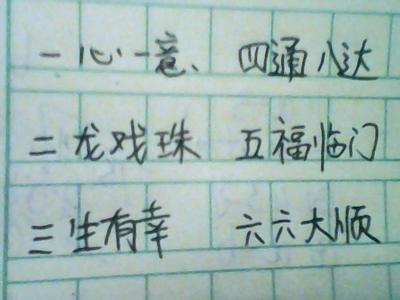 一心一意、 四通八达
二龙戏珠 五福临门
三生有幸 六六大顺